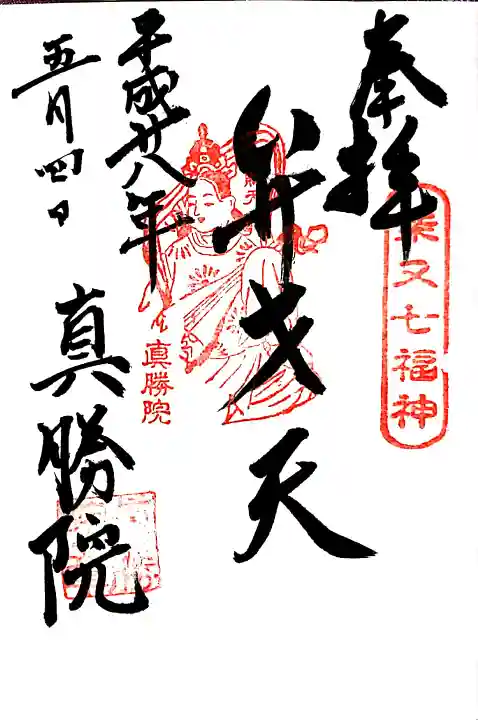 奉拝
柴又七福神
弁才天
平成廿八年
五月四日
真勝院
真勝院